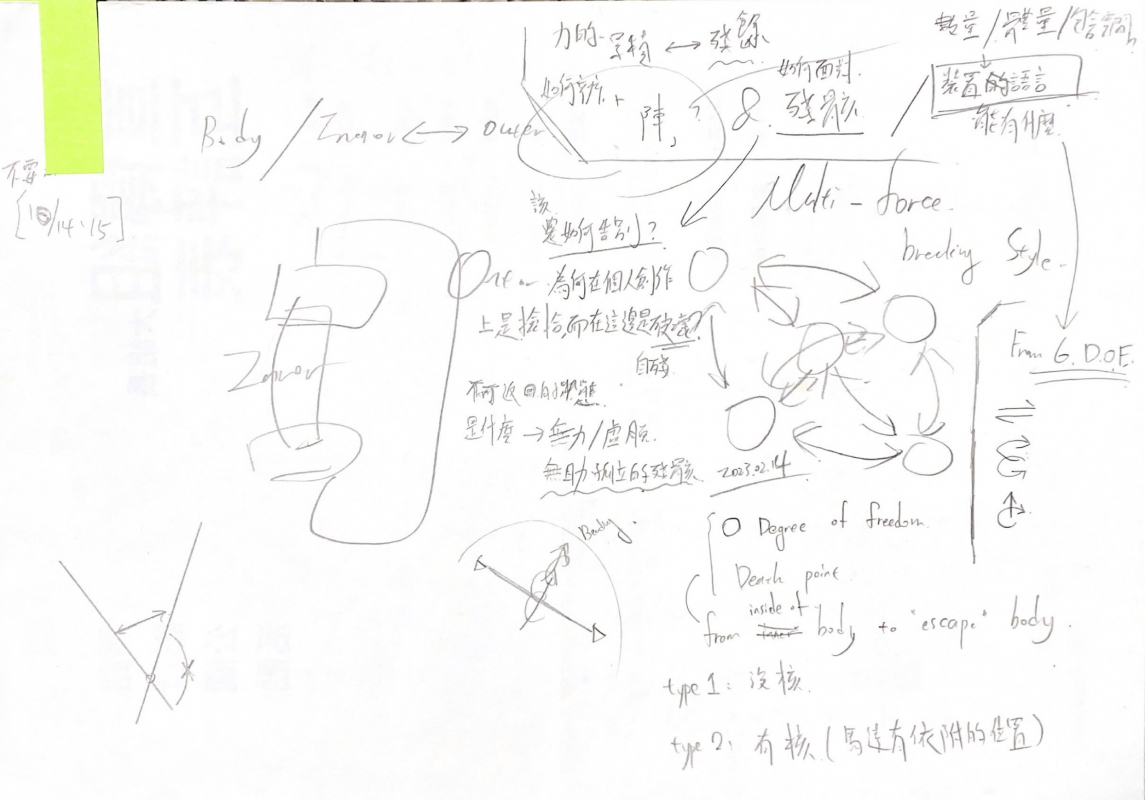 力的累積 ↔ 殘餘
數量/能量/包含關
如何面對
殘骸
裝置的語言
能有什麼
如何
陣, ? &
Body / Inner ↔ Outer
不要
[10/14、15]
Multi-force
breaking Style
該
如何告別?
Outer
為何在個人創作
上是撿拾,而在這邊是破壞?
自殘
不可返回的狀態
是什麼 → 無力/虛脫
無助孤立的殘骸
2023.02.14
Inner
From 6. D.O.F.
Body.
O Degree of freedom
Death point
from inside of body to "escape" body.
type 1: 沒核
type 2: 有核 (馬達有依附的位置)